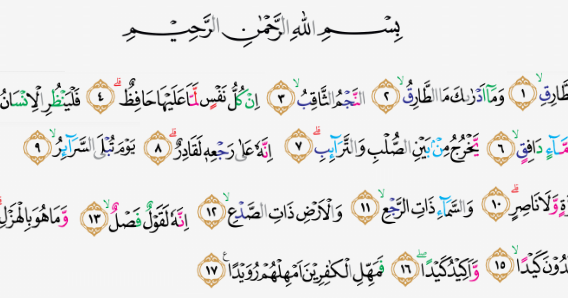 بِسْمِ اللهِ الرَّحْمٰنِ الرَّحِيْمِ
طَّارِقِۙ ١ وَمَآ اَدْرٰىكَ مَا الطَّارِقُۙ ٢ النَّجْمُ الثَّاقِبُۙ ٣ اِنْ كُلُّ نَفْسٍ لَّمَّا عَلَيْهَا حَافِظٌۗ ٤ فَلْيَنْظُرِ الْاِنْسَانُ
مَّاۤءٍ دَافِقٍۙ ٦ يَّخْرُجُ مِنْۢ بَيْنِ الصُّلْبِ وَالتَّرَاۤىِٕبِۗ ٧ اِنَّهٗ عَلٰى رَجْعِهٖ لَقَادِرٌۗ ٨ يَوْمَ تُبْلَى السَّرَاۤىِٕرُۙ ٩
ةٍ وَّلَا نَاصِرٍۗ ١٠ وَالسَّمَاۤءِ ذَاتِ الرَّجْعِۙ ١١ وَالْاَرْضِ ذَاتِ الصَّدْعِۙ ١٢ اِنَّهٗ لَقَوْلٌ فَصْلٌۙ ١٣ وَّمَا هُوَ بِالْهَزْلِ
دُوْنَ كَيْدًاۙ ١٥ وَّاَكِيْدُ كَيْدًاۖ ١٦ فَمَهِّلِ الْكٰفِرِيْنَ اَمْهِلْهُمْ رُوَيْدًا ࣖ ١٧